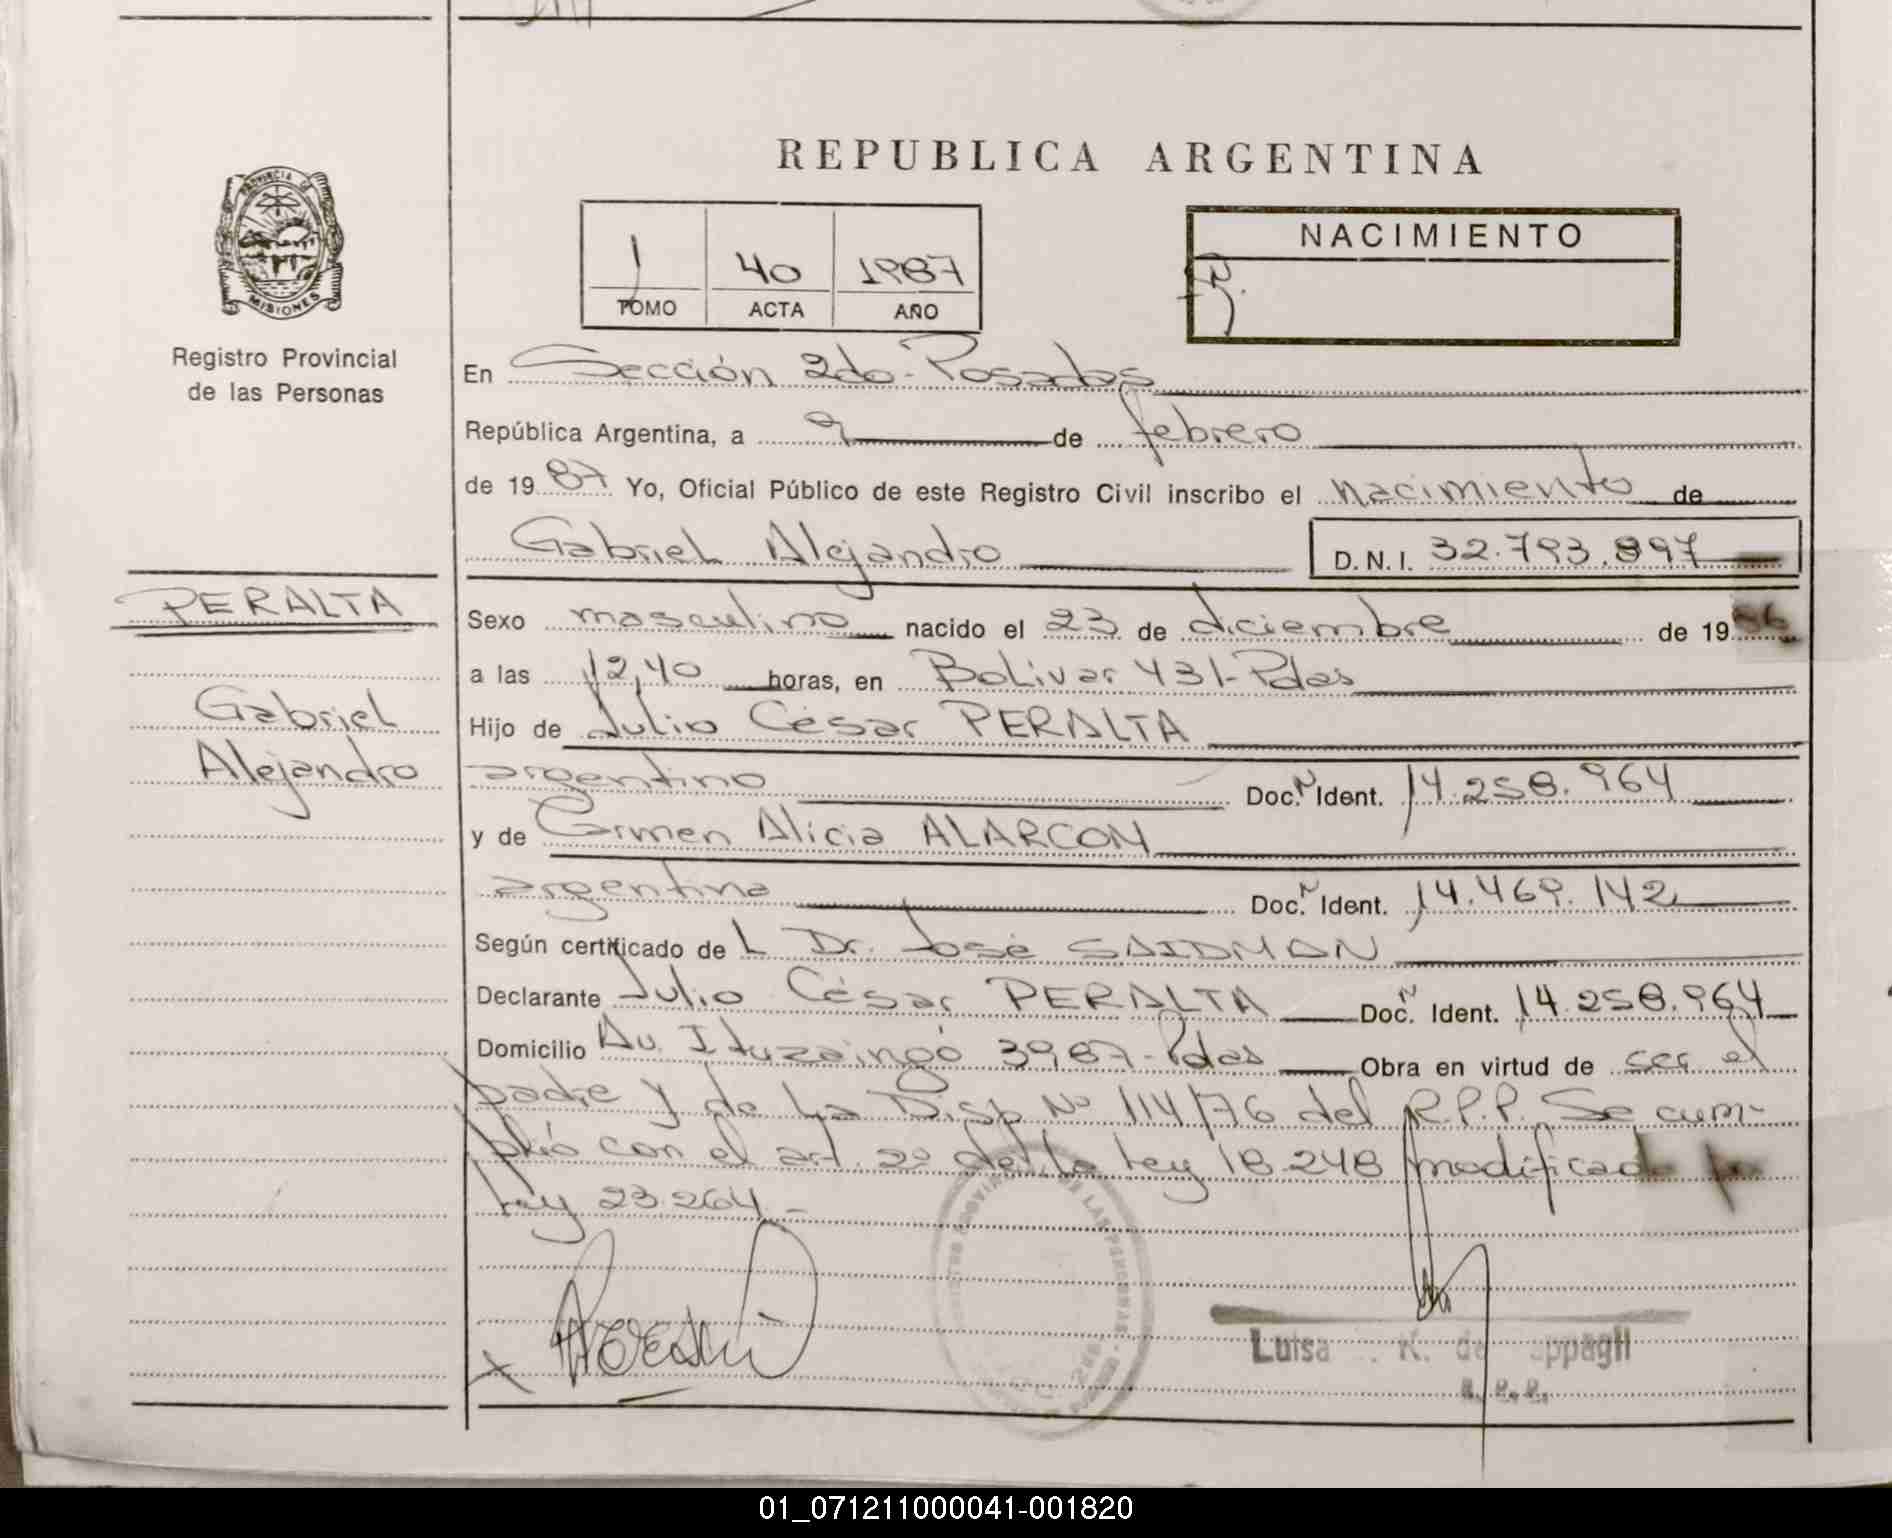 REPUBLICA ARGENTINA
PROVINCIA DE
MISIONES
Registro Provincial
de las Personas
1 40 1987
TOMO ACTA AÑO
NACIMIENTO
En Sección 2do-Posadas
República Argentina, a 9 de febrero
de 1987 Yo, Oficial Público de este Registro Civil inscribo el nacimiento de
Gabriel Alejandro D.N.I. 32.793.897
PERALTA
Gabriel
Alejandro
Sexo masculino nacido el 23 de diciembre de 1986
a las 12,40 horas, en Bolivar 431-Pdas
Hijo de Julio César PERALTA
argentino Doc. Ident. 14.258.964
y de Carmen Alicia ALARCON
argentina Doc. Ident. 14.469.142
Según certificado de L Dr. José SAIDMAN
Declarante Julio César PERALTA Doc. Ident. 14.258.964
Domicilio Av. Ituzaingó 3987-Pdas Obra en virtud de ser el
padre y de La Disp Nº 114/76 del R.P.P. Se cum-
plió con el art. 2º de la Ley 18.248 modificado por
Ley 23.264-
Luisa K. de
01_071211000041-001820